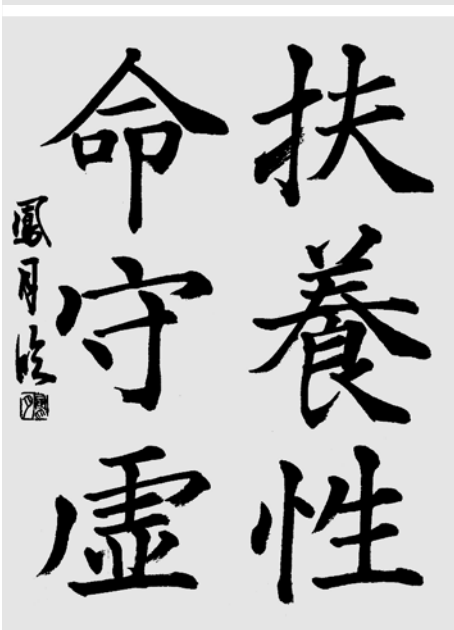 扶養性
命守虚
鳳月臨